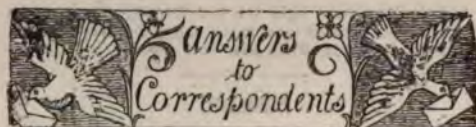 answers
to
Correspondents